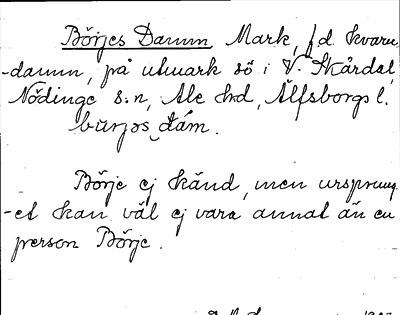 Börjes Damm, Mark, f.d. kvarn
-damm, på utmark sö i V. Skårdal,
Nödinge s:n, Ale hd, Älfsborgs l.
bu̇rjos dȧm.
Börje ej känd, men ursprung
-et kan väl ej vara annat än en
person Börje.